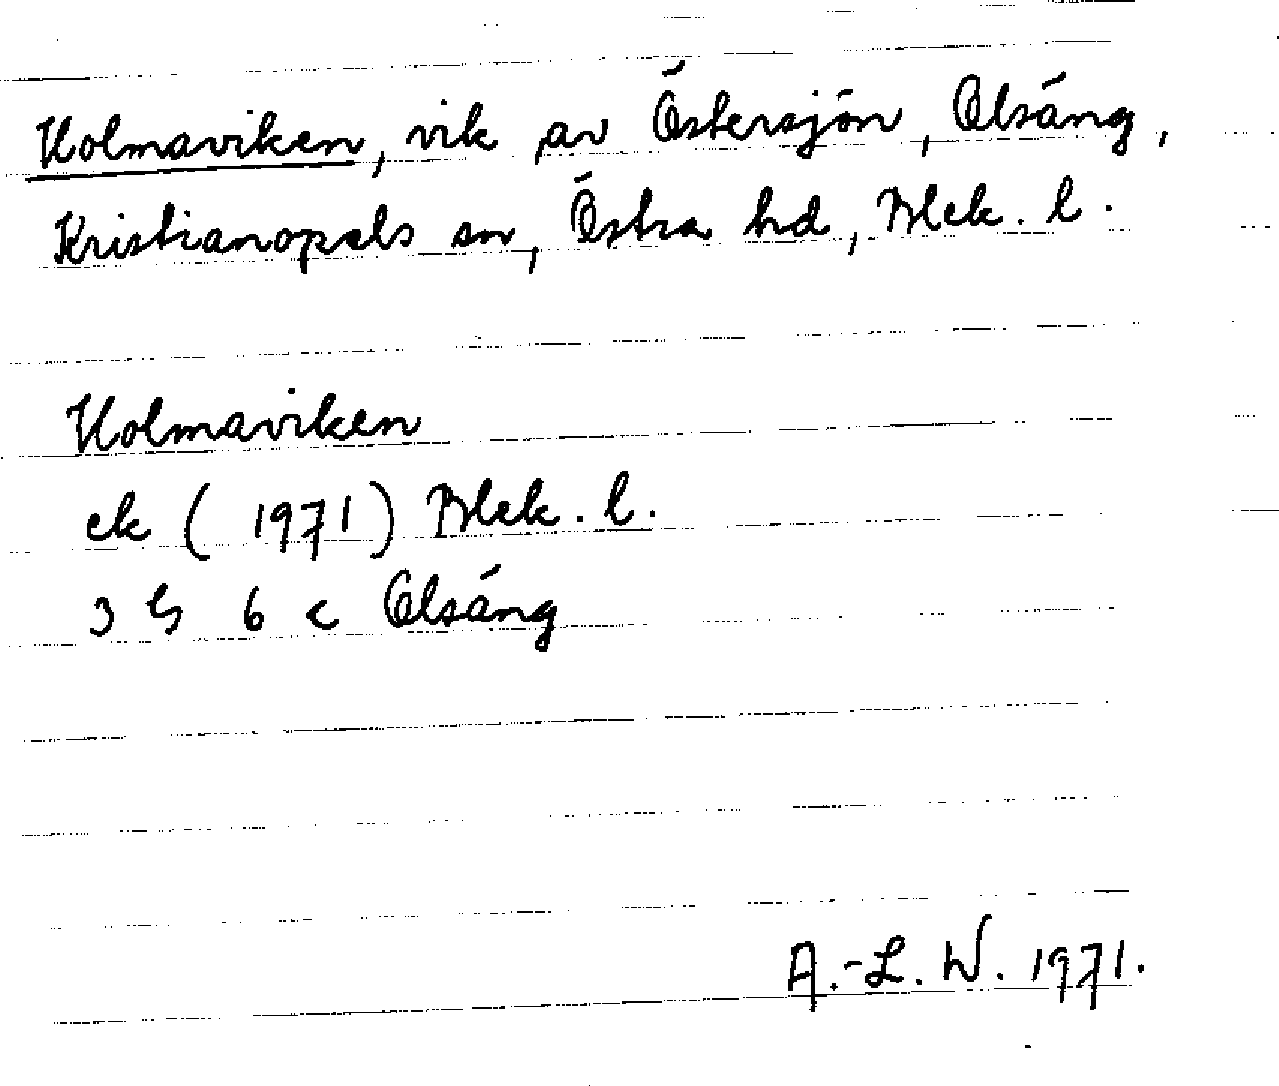 Holmaviken, vik av Östersjön, Olsäng,
Kristianopels sn, Östra hd, Blek. l.
Holmaviken
ek (1971) Blek. l.
3 G 6 c Olsäng
A.-L. W. 1971.